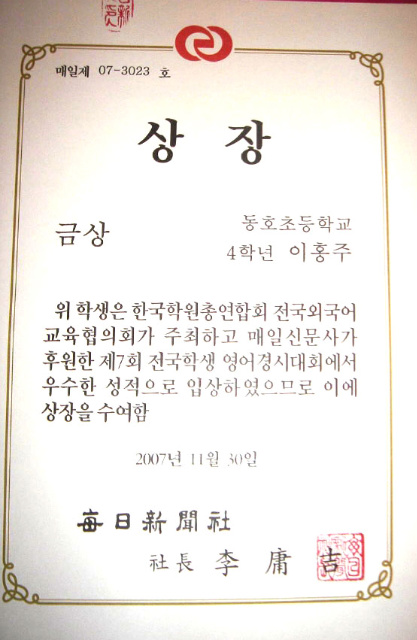 매일제 07-3023 호
상 장
금상
동호초등학교
4학년 이홍주
위 학생은 한국학원총연합회 전국외국어
교육협의회가 주최하고 매일신문사가
후원한 제7회 전국학생 영어경시대회에서
우수한 성적으로 입상하였으므로 이에
상장을 수여함
2007년 11월 30일
每日新聞社
社長 李庸吉